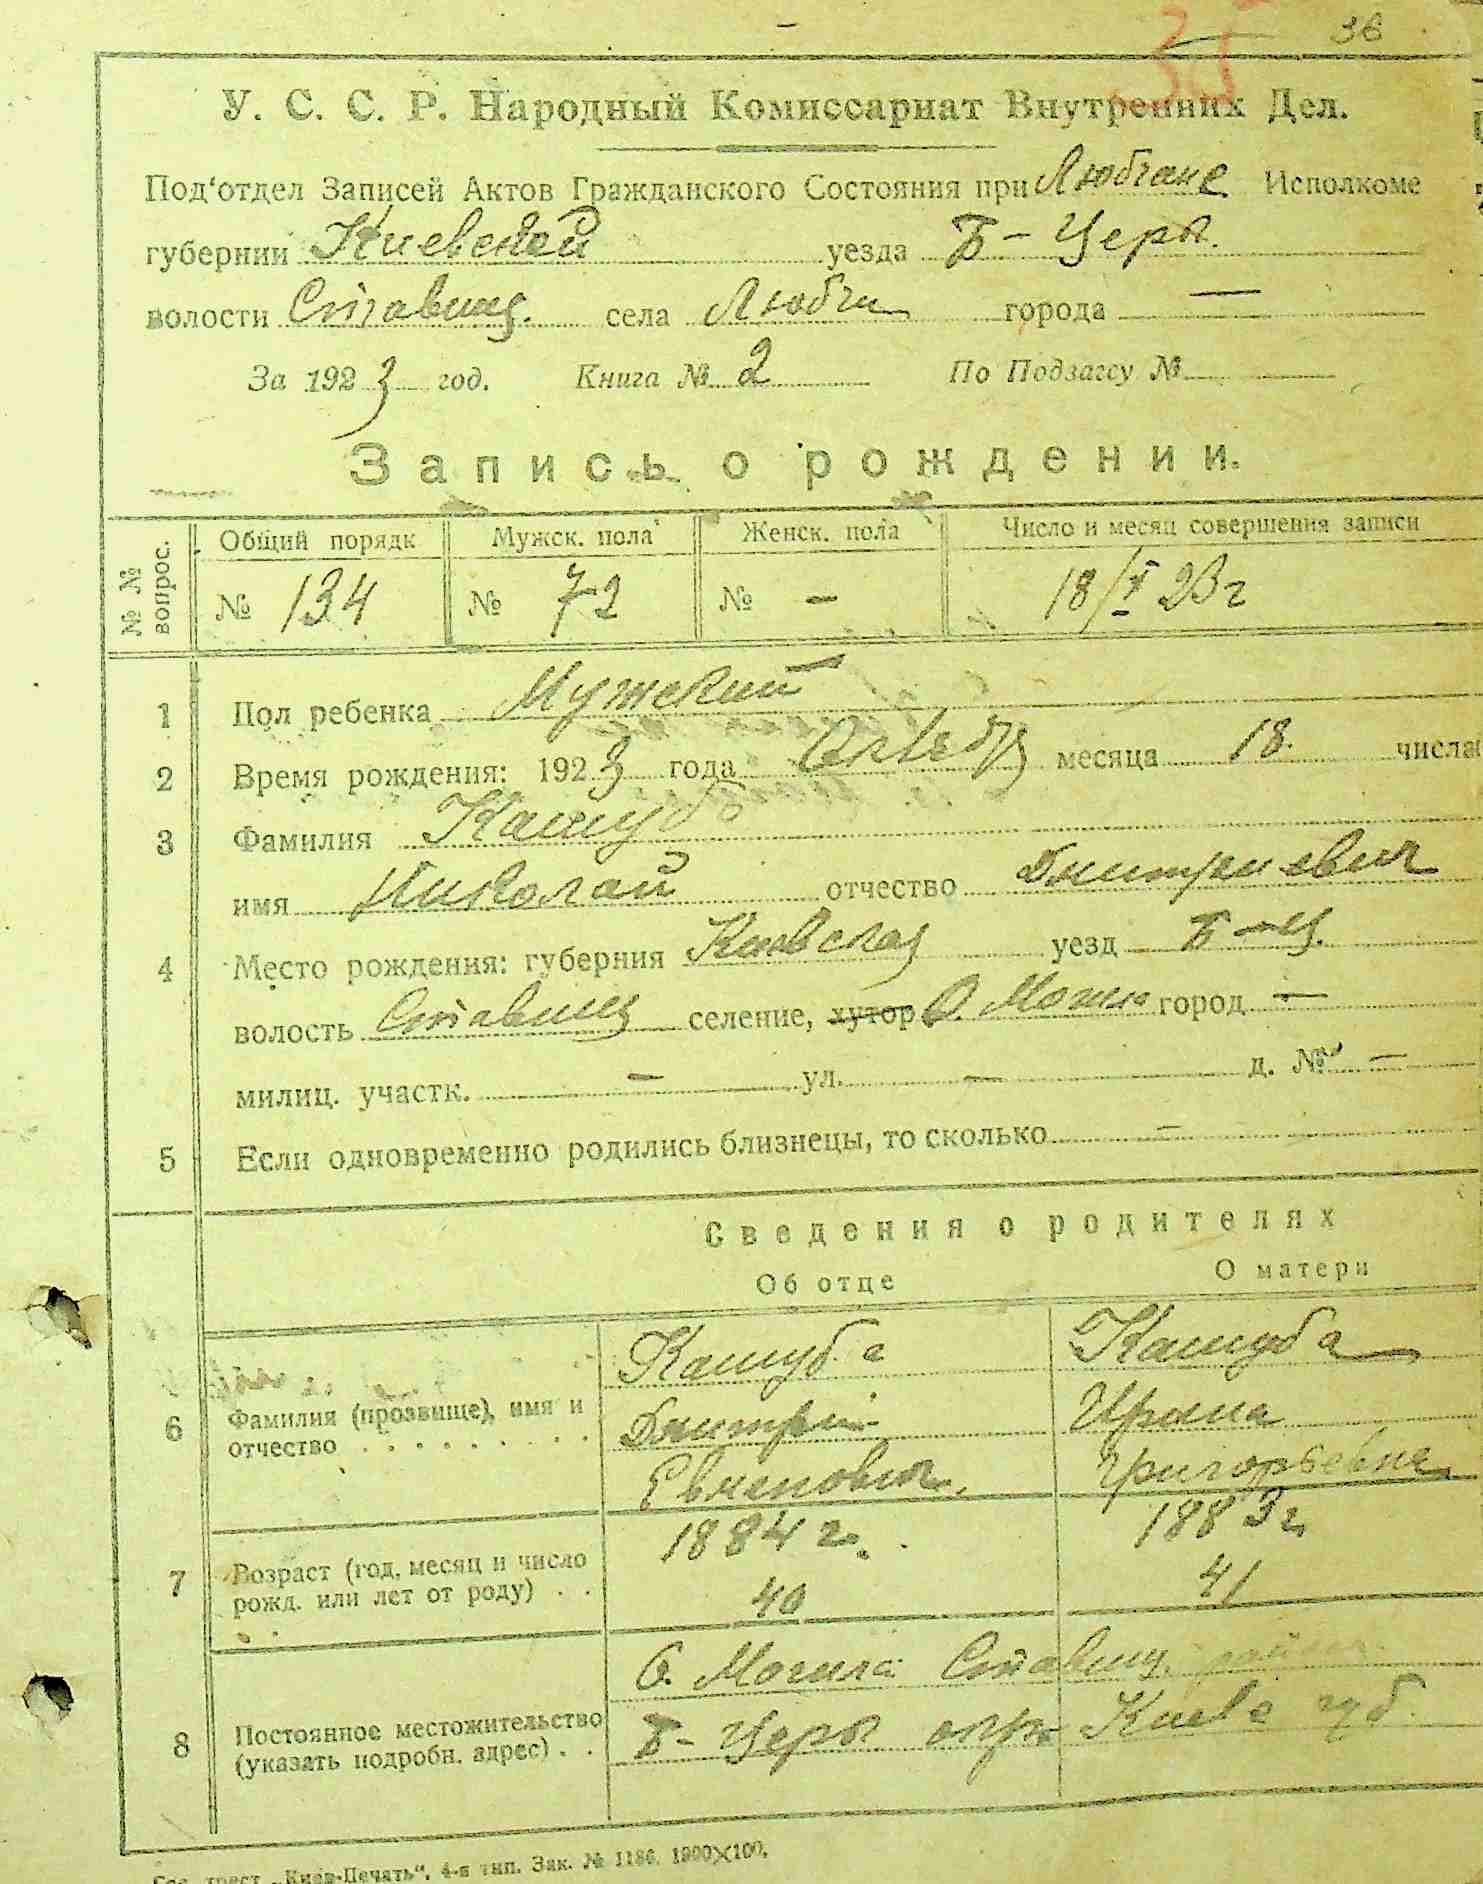 36
35
У. С. С. Р. Народный Комиссариат Внутренних Дел.
Под‘отдел Записей Актов Гражданского Состояния при Любчане Исполкоме
губернии Киевской уезда Б-Церк.
волости Ставищ. села Любчи города —
За 1923 год. Книга № 2 По Подзагсу №
Запись о рождении.
№ № вопрос. Общий порядк Мужск. пола Женск. пола Число и месяц совершения записи
№ 134 № 72 № – 18/X 23 г
1 Пол ребенка Мужский
2 Время рождения: 1923 года Октяб месяца 18. числа
3 Фамилия Кашуба
имя Николай отчество Дмитриевич
4 Место рождения: губерния Киевская уезд Б-Ц.
волость Ставищ селение, хутор О. Могил город —
милиц. участк. — ул. — д. № —
5 Если одновременно родились близнецы, то сколько —
Сведения о родителях
Об отце О матери
Кашуба Кашуба
6 Фамилия (прозвище), имя и отчество Дмитрий Ирина
Григорьевна
1884 г. 1883 г.
7 Возраст (год, месяц и число рожд. или лет от роду) 40 41
О. Могила Ставищ. район
8 Постоянное местожительство (указать подробн. адрес) Б-Церк окр. Киевс губ.
Гос. трест „Киев-Печать“, 4-я тип. Зак. № 1186. 1900×100.